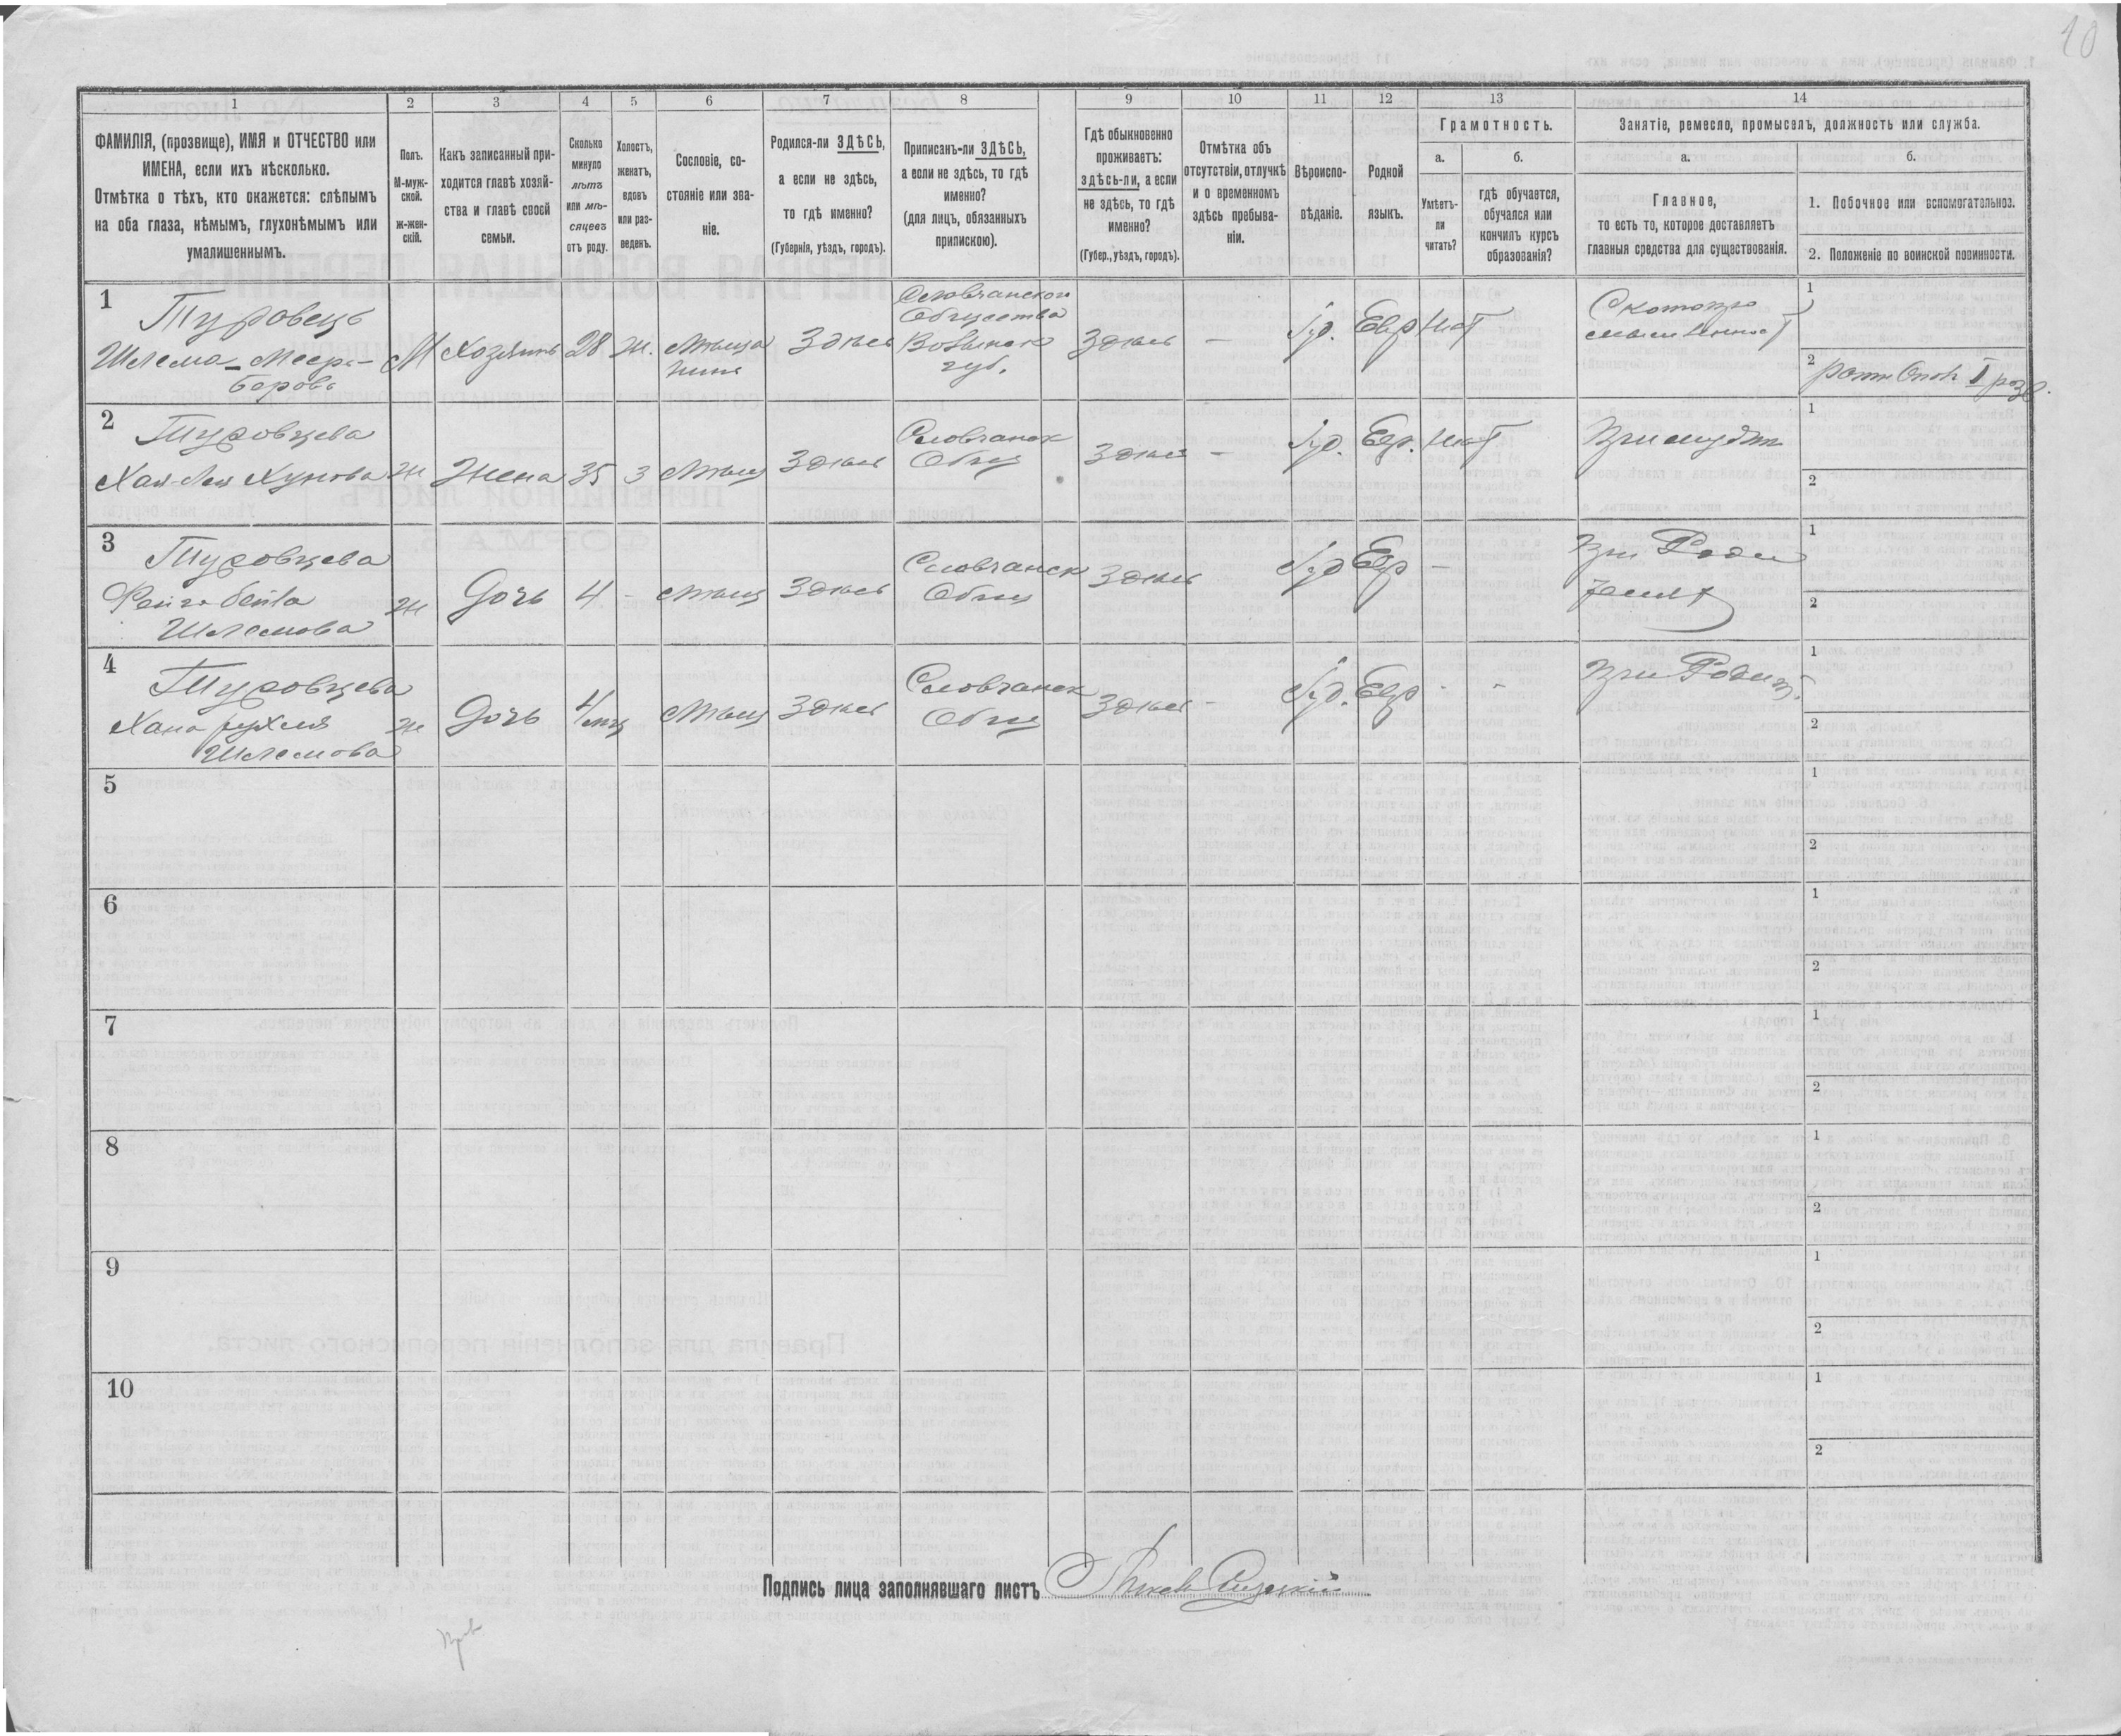 10
1 2 3 4 5 6 7 8 9 10 11 12 13 14
ФАМИЛІЯ, (прозвище), ИМЯ и ОТЧЕСТВО или
ИМЕНА, если ихъ нѣсколько.
Отмѣтка о тѣхъ, кто окажется: слѣпымъ
на оба глаза, нѣмымъ, глухонѣмымъ или
умалишеннымъ.
Полъ.
М-муж-
ской.
ж-жен-
скій.
Какъ записанный при-
ходится главѣ хозяй-
ства и главѣ своей
семьи.
Сколько
минуло
лѣтъ
или мѣ-
сяцевъ
отъ роду.
Холостъ,
женатъ,
вдовъ
или раз-
веденъ.
Сословіе, со-
стояніе или зва-
ніе.
Родился-ли ЗДѢСЬ,
а если не здѣсь,
то гдѣ именно?
(Губернія, уѣздъ, городъ).
Приписанъ-ли ЗДѢСЬ,
а если не здѣсь, то гдѣ
именно?
(для лицъ, обязанныхъ
припискою).
Гдѣ обыкновенно
проживаетъ:
здѣсь-ли, а если
не здѣсь, то гдѣ
именно?
(Губер., уѣздъ, городъ).
Отмѣтка объ
отсутствіи, отлучкѣ
и о временномъ
здѣсь пребыва-
ніи.
Вѣроиспо-
вѣданіе.
Родной
языкъ.
Грамотность.
а.
Умѣетъ-
ли
читать?
б.
гдѣ обучается,
обучался или
кончилъ курсъ
образованія?
Занятіе, ремесло, промыселъ, должность или служба.
а.
Главное,
то есть то, которое доставляетъ
главныя средства для существованія.
б.
1. Побочное или вспомогательное.
2. Положеніе по воинской повинности.
1
Туровецъ
Шлема-Меер-
беровъ
М
Хозяинъ
28
Ж.
Мѣща
нинъ
Здѣсь
Словчанскои
Общества
Волынск
губ.
Здѣсь
-
Іуд.
Евр
Нѣт
Скотопро
мышленност
1
2
ратн Опол I розр.
2
Туровцева
Хая-Лея Хунова
Ж
Жена
35
З
Мѣщ
Здѣсь
Словчанск
Общ
Здѣсь
-
Іуд.
Евр.
Нѣт
При мужѣ
1
2
3
Туровцева
Фейга бейла
Шлемова
Ж
Дочь
4
-
Мѣщ
Здѣсь
Словчанск
Общ
Здѣсь
Іуд
Евр
-
При Роди
телях
1
2
4
Туровцева
Хана рухля
Шлемова
Ж
Дочь
4/мц
Мѣщ
Здѣсь
Словчанск
Общ
Здѣсь
-
Іуд.
Евр
-
-
При Родит.
1
2
5
1
2
6
1
2
7
1
2
8
1
2
9
1
2
10
1
2
Подпись лица заполнявшаго листъ